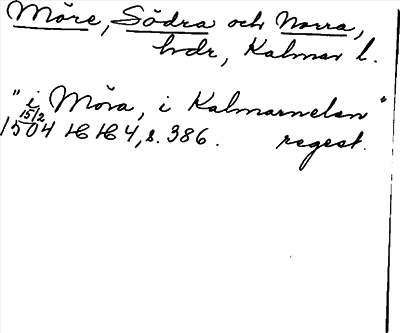 Möre, Södra och Norra,
hdr, Kalmar l.
"i Möra, i Kalmarnelän"
15/2
1504 HH 4, s. 386. regest.